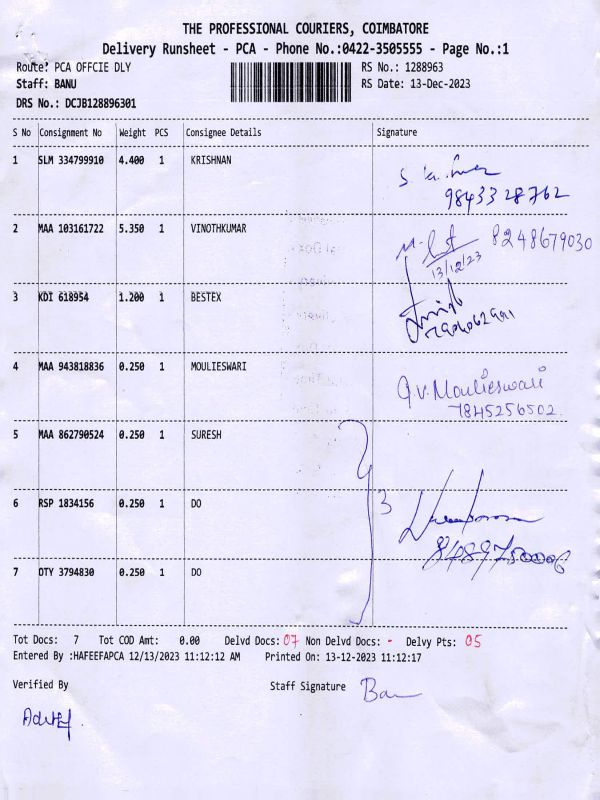 THE PROFESSIONAL COURIERS, COIMBATORE
Delivery Runsheet - PCA - Phone No.:0422-3505555 - Page No.:1
Route: PCA OFFCIE DLY RS No.: 1288963
Staff: BANU RS Date: 13-Dec-2023
DRS No.: DCJB128896301
S No Consignment No Weight PCS Consignee Details Signature
1 SLM 334799910 4.400 1 KRISHNAN
9843328762
2 MAA 103161722 5.350 1 VINOTHKUMAR 8248679030
13/12/23
3 KDI 618954 1.200 1 BESTEX
4 MAA 943818836 0.250 1 MOULIESWARI G.V.Moulieswari
7845256502.
5 MAA 862790524 0.250 1 SURESH
6 RSP 1834156 0.250 1 DO 3
7 OTY 3794830 0.250 1 DO
Tot Docs: 7 Tot COD Amt: 0.00 Delvd Docs: 07 Non Delvd Docs: - Delvy Pts: 05
Entered By :HAFEEFAPCA 12/13/2023 11:12:12 AM Printed On: 13-12-2023 11:12:17
Verified By Staff Signature